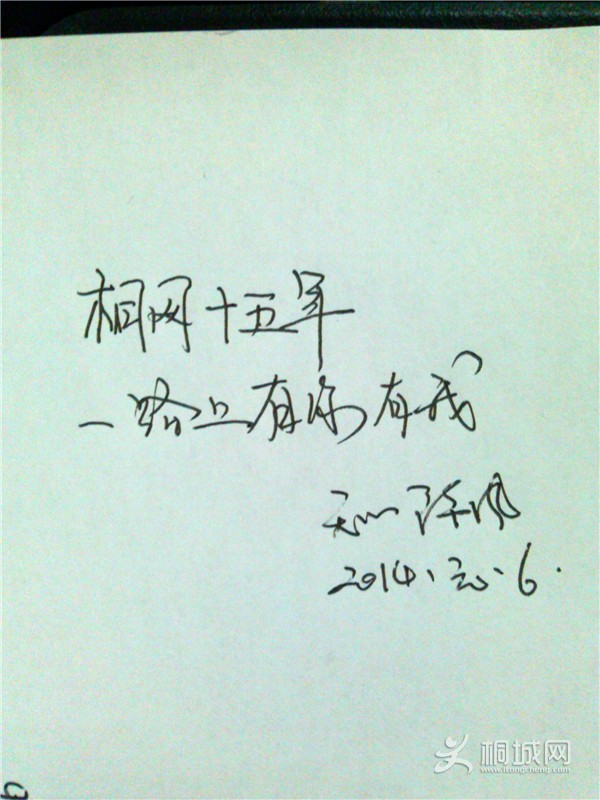 桐网十五年
一路上有你有我
2014.元.6.
桐城网
www.itongcheng.com